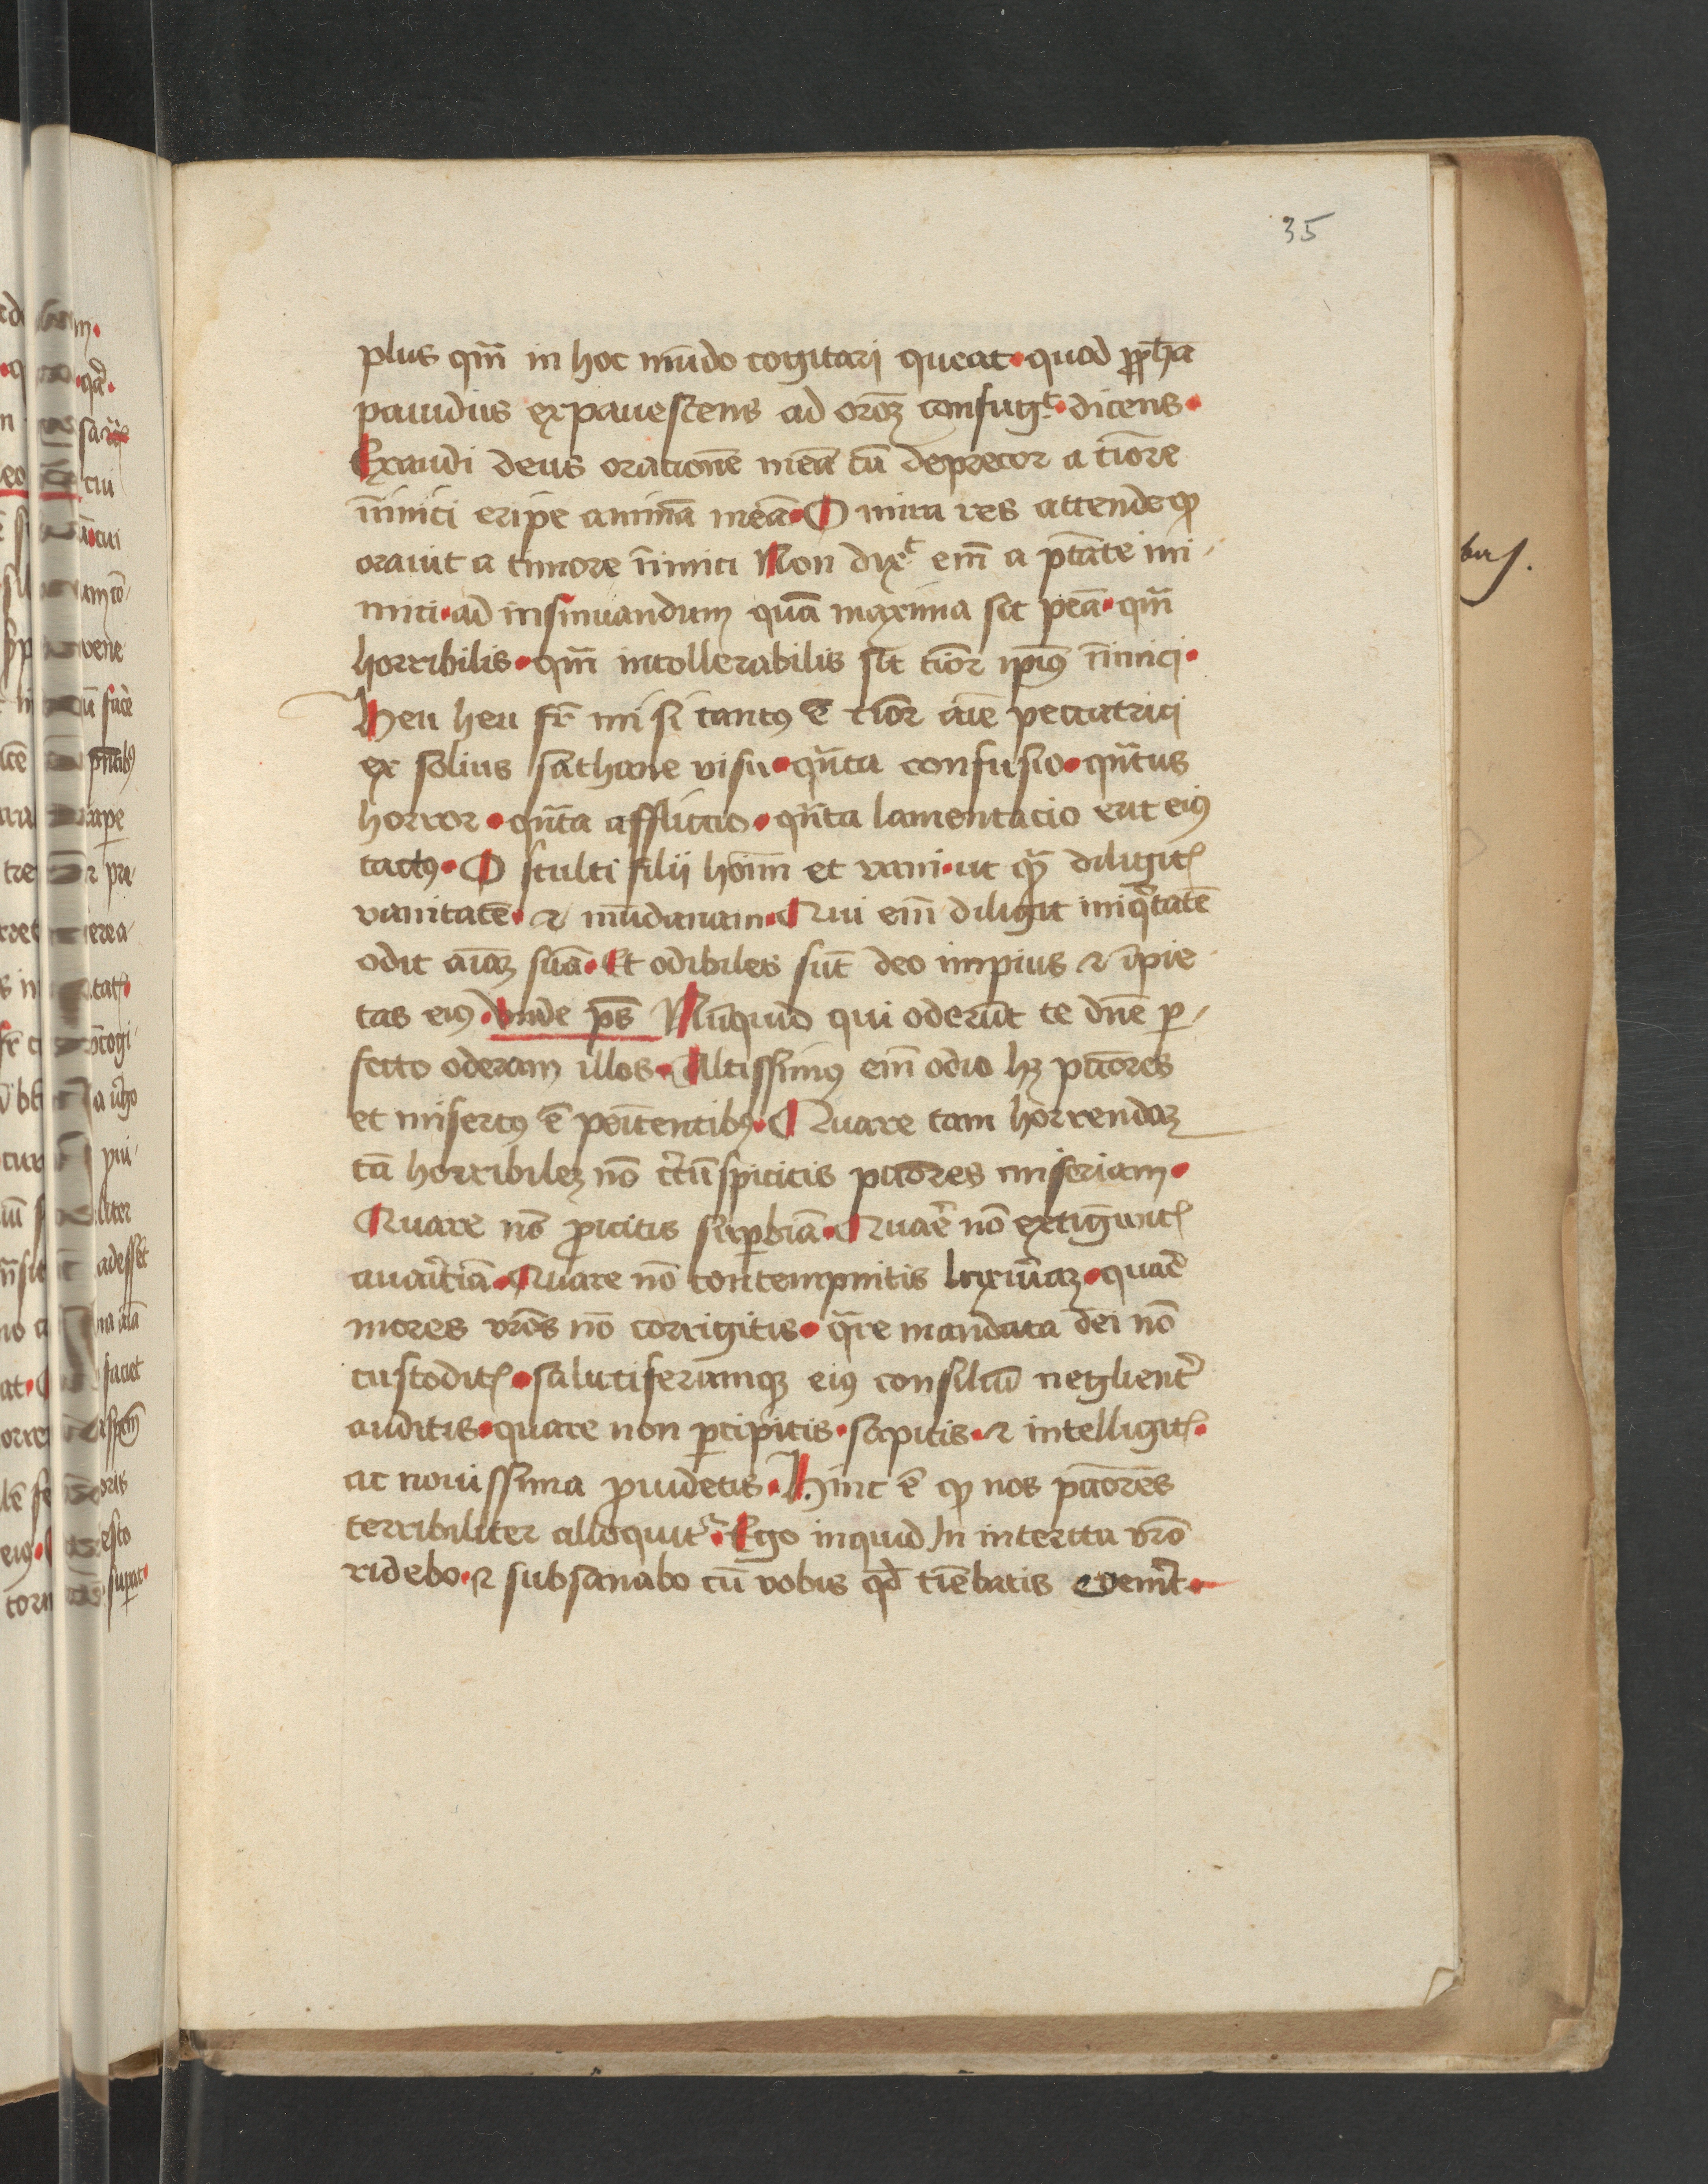 35
plus qm̄ in hoc mūdo cogitari queat · quod ꝓph̄a
pauidus expauescens ad oroꝫ confugᵗ · dicens ·
Exaudi deus orationē meā cū deprecor a tiōre
īimici eripe animā meā · O mira res attende ꝙ
orauit a timore īimici Non dixᵗ em̄ a ptāte ini
mici · ad insinuandum quā maxima sit pēa · qm̄
horribilis · qm̄ intollerabilis sit tiōr ip̄iꝰ īimici ·
Heu heu fr̄ mi si tantꝰ ē tiōr aīe peccatrici
ex solius sathane visu · qn̄ta confusio · qn̄tus
horror · qn̄ta afflictio · qn̄ta lamentacio erit eiꝰ
tactꝰ · O stulti filij hoīm et vani · ut qͣ diligitꝭ
vanitatē · ⁊ mūdanam · Qui em̄ diligit iniqͥtatē
odit aīaꝫ suā · Et odibiles sūt deo impius ⁊ īpie
tas eiꝰ · Unde ps̄ Nūquid qui oderūt te dn̄e ꝑ
fecto oderam illos · Altissimꝰ em̄ odio hꝫ pctōres
et misertꝰ ē peītentibꝰ · Quare tam horrendaꝫ
tā horribileꝫ nō c̄cūspicitis pctōres miseriam ·
Quare nō ꝓicitis suꝑbiā · Quarē nō extīguitꝭ
auaritiā · Quare nō contempnitis luxuriaꝫ · quare
mores vr̄os nō corrigitis · qͣre mandata dei nō
custoditꝭ · salutiferumqꝫ eiꝰ consiliū neglienter
auditis · quare non ꝑcipitis · sapitis · ⁊ intelligitꝭ ·
ac nouissima ꝓuidetis · Hinc ē ꝙ nos pctōres
terribiliter alloquit᷑ · Ego inquid in interitu vr̄o
ridebo · ⁊ subsanabo cū vobis qd̄ tiēbatis euenerit ·
bus.